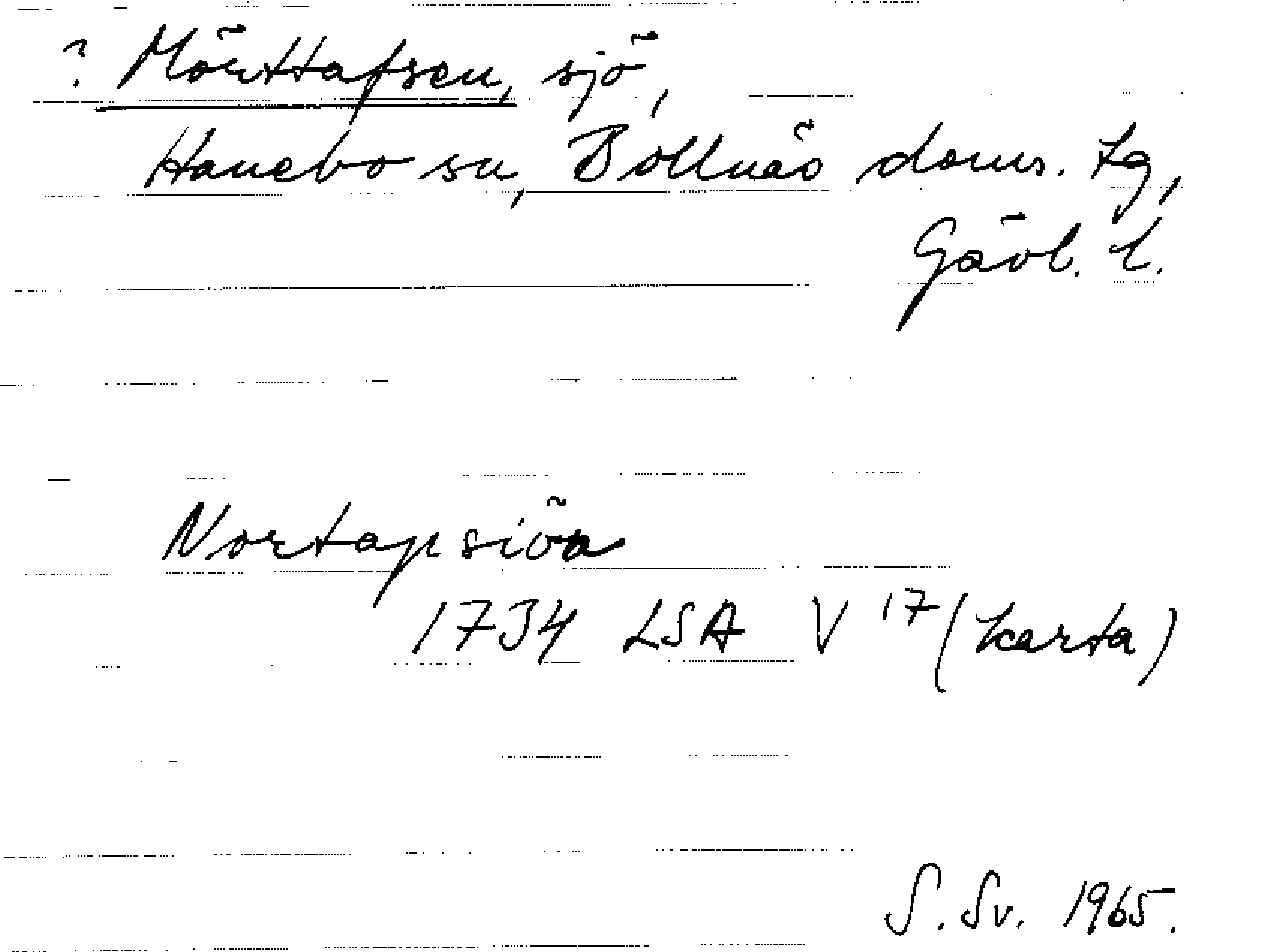 ? Mörttafsen, sjö,
Hanebo sn, Bollnäs doms. tg,
Gävl. l.
Nortapsiön
1734 LSA V 17 (karta)
S. Sv. 1965.